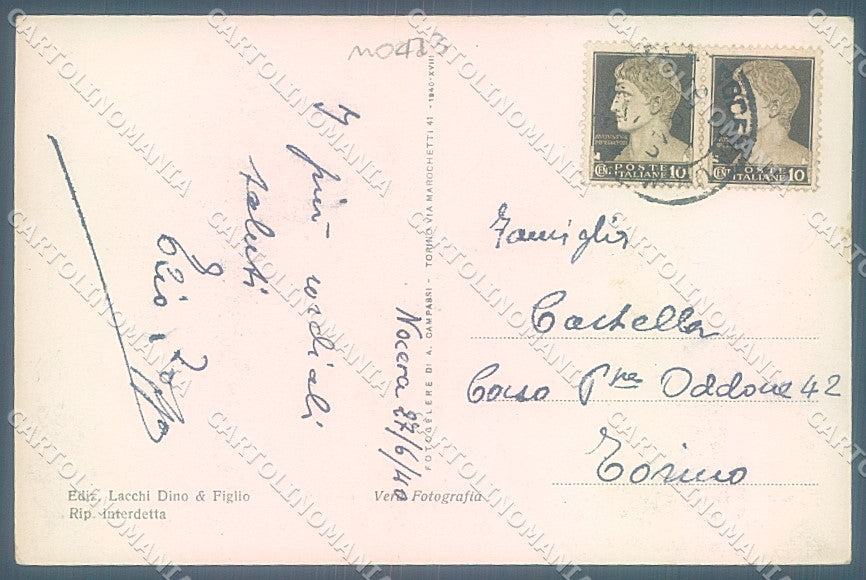 M0423
I più cordiali
saluti
Nocera 27/6/40
FOTOCELERE DI A. CAMPASSI - TORINO VIA MAROCHETTI 41 - 1940-XVIII
POSTE ITALIANE
CEN. 10
POSTE ITALIANE
CEN. 10
Famiglia
Castella
Corso Pne Oddone 42
Torino
Ediz. Lacchi Dino & Figlio
Rip. interdetta
Vera Fotografia
CARTOLINOMANIA